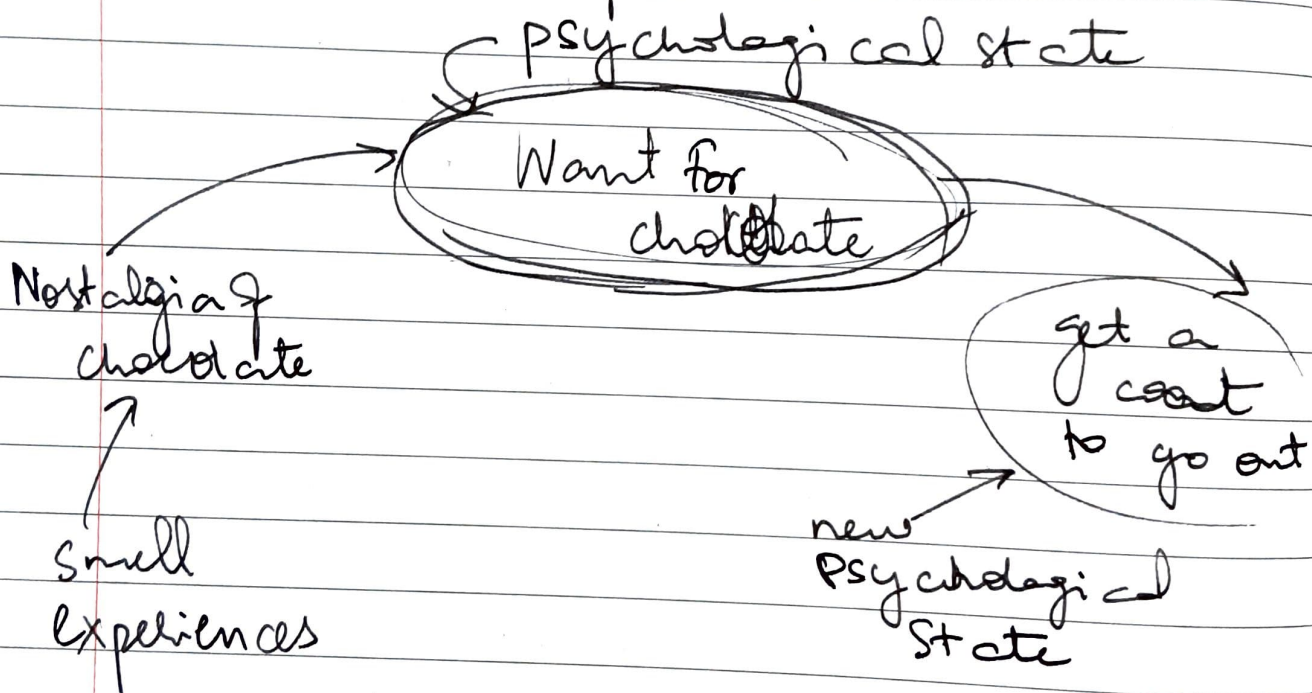 psychological state
Want for
chocolate
Nostalgia of
chocolate
get a
coat
to go out
smell
experiences
new
psychological
state